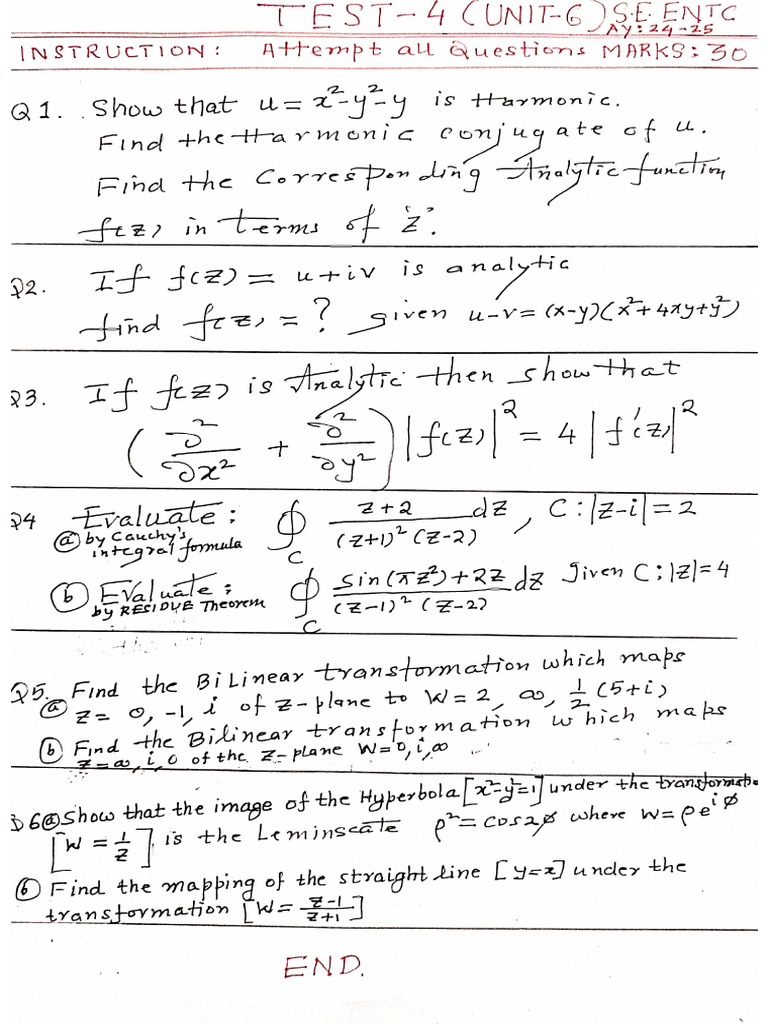 TEST-4 (UNIT-6) S.E. ENTC
AY: 24-25
INSTRUCTION: Attempt all Questions MARKS: 30
Q1. Show that u = x²-y²-y is Harmonic.
Find the Harmonic conjugate of u.
Find the Corresponding Analytic function
f(z) in terms of 'z'.
Q2. If f(z) = u+iv is analytic
find f(z) = ? given u-v = (x-y)(x²+4xy+y²)
Q3. If f(z) is Analytic then show that
(∂²/∂x² + ∂²/∂y²) |f(z)|² = 4 |f'(z)|²
Q4 Evaluate: ∮_C (z+2)/((z+1)² (z-2)) dz, C: |z-i| = 2
(a) by Cauchy's integral formula
(b) Evaluate: ∮_C (sin(πz²)+2z)/((z-1)² (z-2)) dz Given C: |z|=4
by RESIDUE Theorem
Q5. Find the BiLinear transformation which maps
(a) z = 0, -1, i of z-plane to W = 2, ∞, ½ (5+i)
(b) Find the Bilinear transformation which maps
z=∞, i, 0 of the z-plane W=0, i, ∞
Q6(a) Show that the image of the Hyperbola [x²-y²=1] under the transformatio
[W = 1/z] is the Leminscate ρ² = cos2φ where w = ρe^{iφ}
(b) Find the mapping of the straight line [y=x] under the
transformation [W = (z-1)/(z+1)]
END.